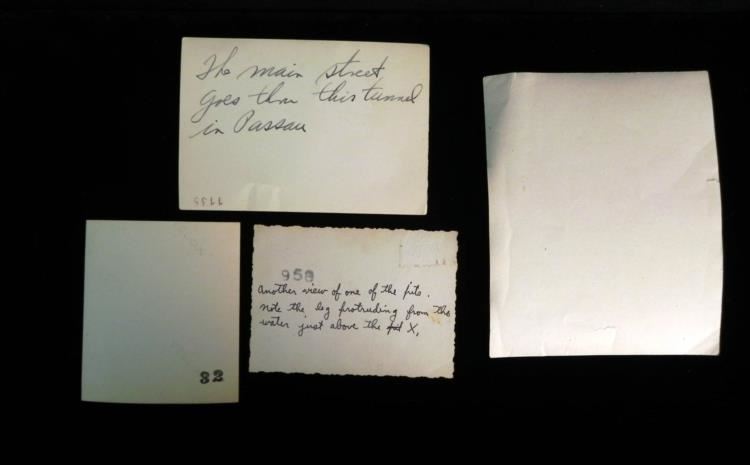 The main street
goes thru this tunnel
in Passau
1135
958
Another view of one of the pits.
note the leg protruding from the
water just above the X.
32